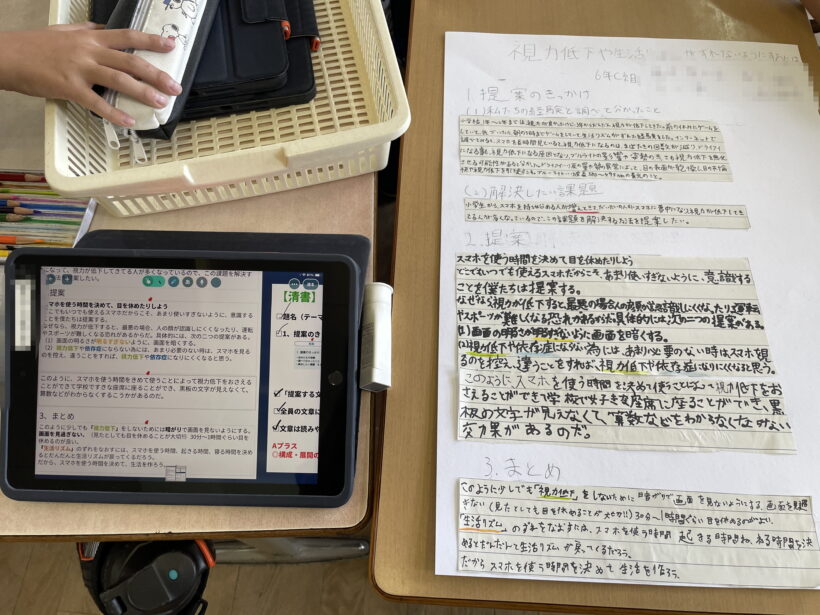 になって、視力が低下してきてる人が多くなっているので、この課題を解決す
提案したい。
提案
マホを使う時間を決めて、目を休めたりしよう
どこでもいつでも使えるスマホだからこそ、あまり使いすぎないように、意識する
ことを僕たちは提案する。
なぜなら、視力が低下すると、最悪の場合、人の顔が認識しにくくなったり、運転
やスポーツが難しくなる恐れがあるからだ。具体的には、次の二つの提案がある。
(1) 画面の明るさが明るすぎないように、画面を暗くする。
(2) 視力低下や依存症にならない為には、あまり必要のない時は、スマホを見る
のを控え、違うことをすれば、視力低下や依存症になりにくくなると思う。
このように、スマホを使う時間をきめて使うことによって視力低下をおさえる
ことができて学校ですきな座席に座ることができ、黒板の文字が見えなくて、
算数などがわからなくするこうかがあるのだ。
3、まとめ
このように少しでも『視力低下』をしないために暗がりで画面を見ないようにする。
画面を見過ぎない。(見たとしても目を休めることが大切!) 30分〜1時間ぐらい目を
休めるのが良い。
『生活リズム』のずれをなおすには、スマホを使う時間、起きる時間、寝る時間を決め
るとだんだんと生活リズムが戻ってくるだろう。
だから、スマホを使う時間を決めて、生活を作ろう。
【清書】
題名(テーマ
1、提案のき
「提案する文
全員の文章に
文章は読みや
Aプラス
◎構成・展開の
視力低下や生活
がずれないようにするには
6年C組
1.提案のきっかけ
(1)私たちの経験と調べて分かったこと
(2)解決したい課題
小学生から、スマホを持ち始める人が増えてきた
えてる人が多くなっているので、この課題を解決する方法を提案したい。
2.提案
スマホを使う時間を決めて目を休めたりしよう
どこでもいつでも使えるスマホだからこそ、あまり使いすぎないように、意識する
ことを僕たちは提案する。
なぜなら、視力が低下すると、最悪の場合人の顔が認識しにくくなったり運転
やスポーツが難しくなる恐れがあるからだ。具体的には次の二つの提案がある。
(1)画面の明るさが明るすぎないように画面を暗くする。
(2)視力低下や依存症にならない為には、あまり必要のない時はスマホを見
るのを控え、違うことをすれば、視力低下や依存症になりにくくなると思う。
このように、スマホを使う時間を決めて使うことによって視力低下をお
さえることができて学校で好きな座席に座ることができ、黒
板の文字が見えなくて、算数などをわからなくしない
効果があるのだ。
3.まとめ
このように少しでも「視力低下」をしないために暗がりで画面を見ないようにする、画面を見過
ぎない(見たとしても目を休めることが大切!!)30分〜1時間ぐらい目を休めるのがよい。
「生活リズム」のずれをなおすには、スマホを使う時間、起きる時間、ねる時間を決
めるとだんだんと生活リズムが戻ってくるだろう。
だからスマホを使う時間を決めて生活を作ろう。